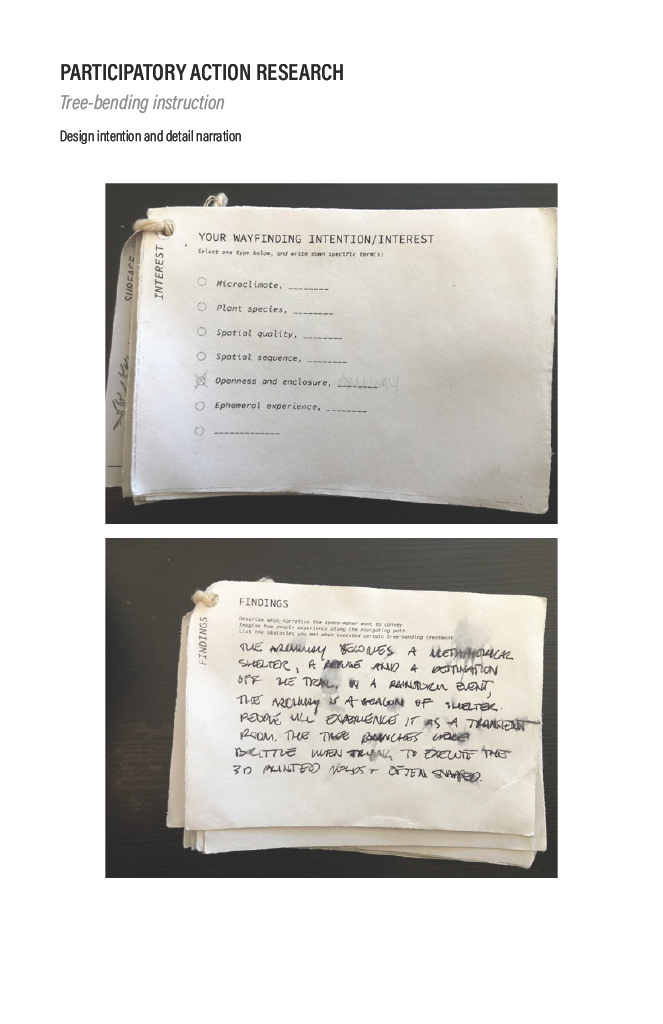 PARTICIPATORY ACTION RESEARCH
Tree-bending instruction
Design intention and detail narration
SURFACE
INTEREST
YOUR WAYFINDING INTENTION/INTEREST
Select one type below, and write down specific term(s)
Microclimate, ________
Plant species, ________
Spatial quality, ________
Spatial sequence, ________
Openness and enclosure, ________
Ephemeral experience, ________
FINDINGS
FINDINGS
Describe what narrative the space-maker want to convey
Imagine how people experience along the navigating path.
List the obstacles you met when executed certain tree-bending treatment
THE ARCHWAY BECOMES A METAPHORICAL
SHELTER, A REFUGE AND A DESTINATION
OFF THE TRAIL. IN A RAINSTORM EVENT,
THE ARCHWAY IS A BEACON OF SHELTER.
PEOPLE WILL EXPERIENCE IT AS A TRANSIENT
ROOM. THE TREE BRANCHES WERE
BRITTLE WHEN TRYING TO EXECUTE THE
3D PRINTED MOLDS + OFTEN SNAPPED.